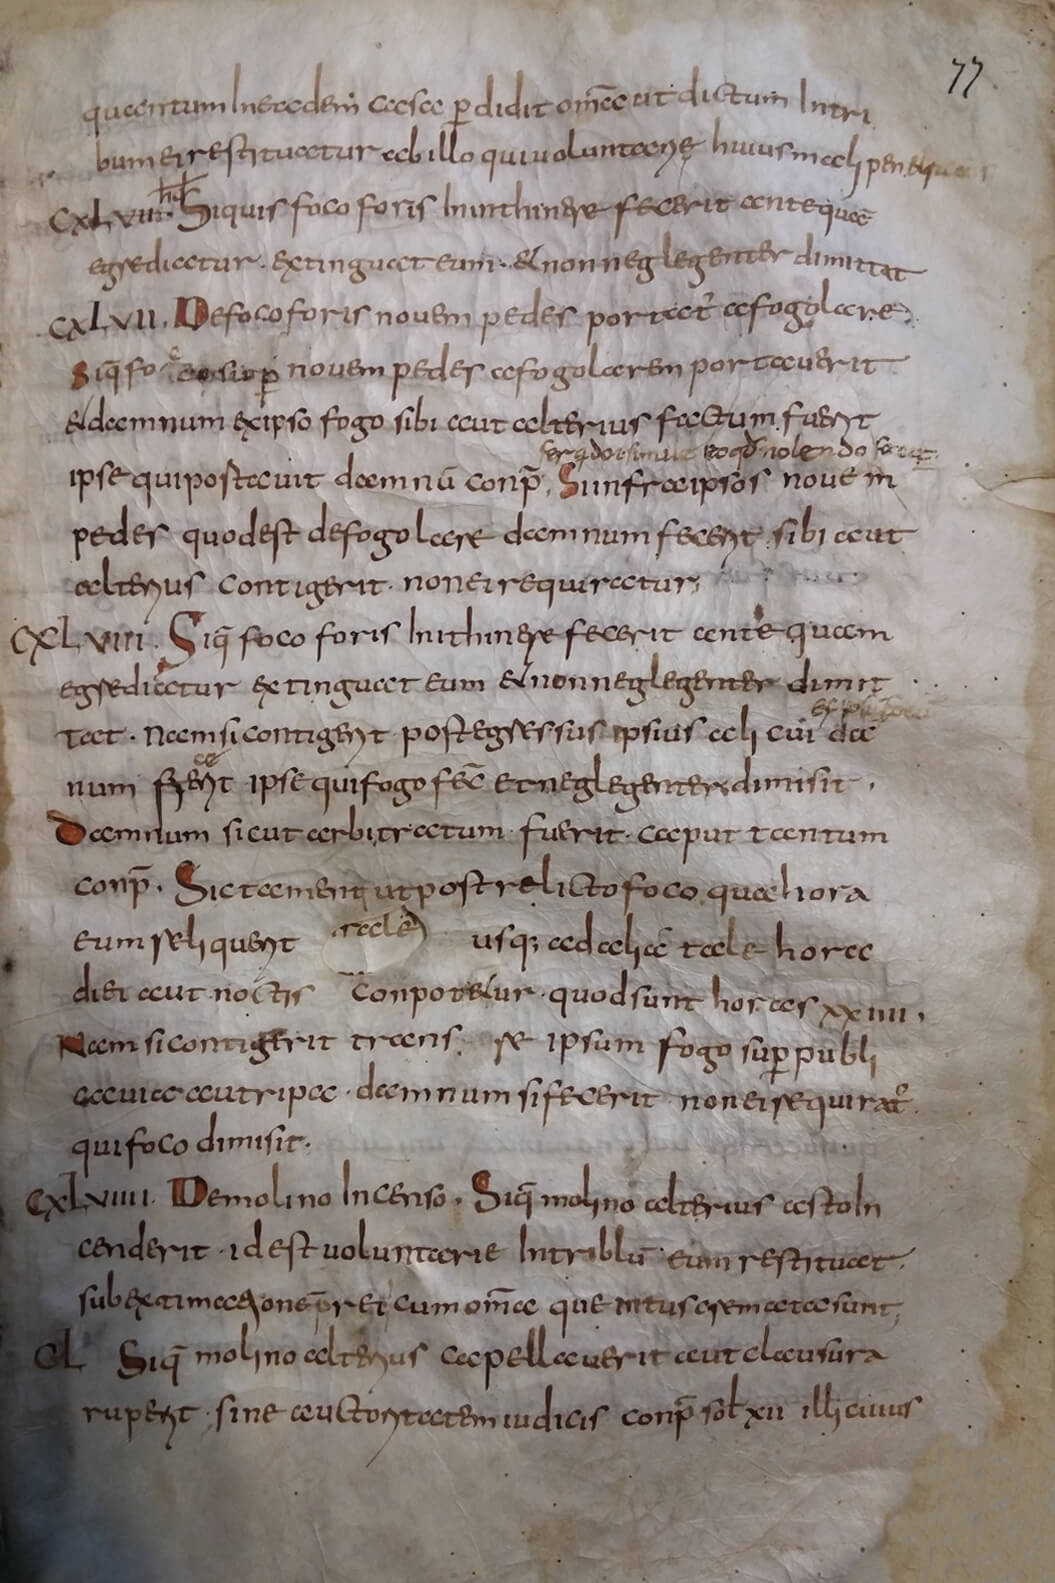 77
quantum in eadem casa perdidit om̅a ut dictum Intri
bum ei restituatur ab illo qui uoluntarie huius mali
CXLVIII Siquis foco foris In inthinere fecerit antequā
egrediatur. extinguat eum. & non neglegenter dimittat
CXLVII. De foco foris nouem pedes portat̅ a fogolare.
Siq̅ fo nouem pedes a fogolarem portauerit
& damnum ex ipso fogo sibi aut alterius factum fuerit
ipse qui postauit damnū conp̅. Si infra ipsos nouem
pedes quod est de fogolare damnum fecerit sibi aut
alterius contigerit. non ei requiratur,
CXLVIII. Siq̅ foco foris In ithinere fecerit ante quam
egrediatur extinguat eum & non neglegenter dimit
tat. Nam si contigerit post egressus ipsius ali cui da
num ipse qui fogo fec̅ et neglegenter dimisit.
Damnum sicut arbitratum fuerit. caput tantum
conp̅. Sic tamen ut post relicto foco qua hora
eum reliquerit usq; ad aliā tale hora
diei aut noctis conpotetur. quod sunt horas xxiiii.
Nam si contigerit trans re ipsum fogo sup̱ publi
ca uia aut ripa. damnum si fecerit non ei requirat̅
qui foco dimisit.
CXLVIIII. De molino Incenso. Siq̅ molino alterius asto In
cenderit. id est uoluntarie Intriblū eum restituat.
sub extimationē pretj cum om̅a que intus cremata sunt,
CL Siq̅ molino alterius capellauerit aut clausura
ruperit. sine auctoritatem iudicis conp̅ sol xii illi cuius